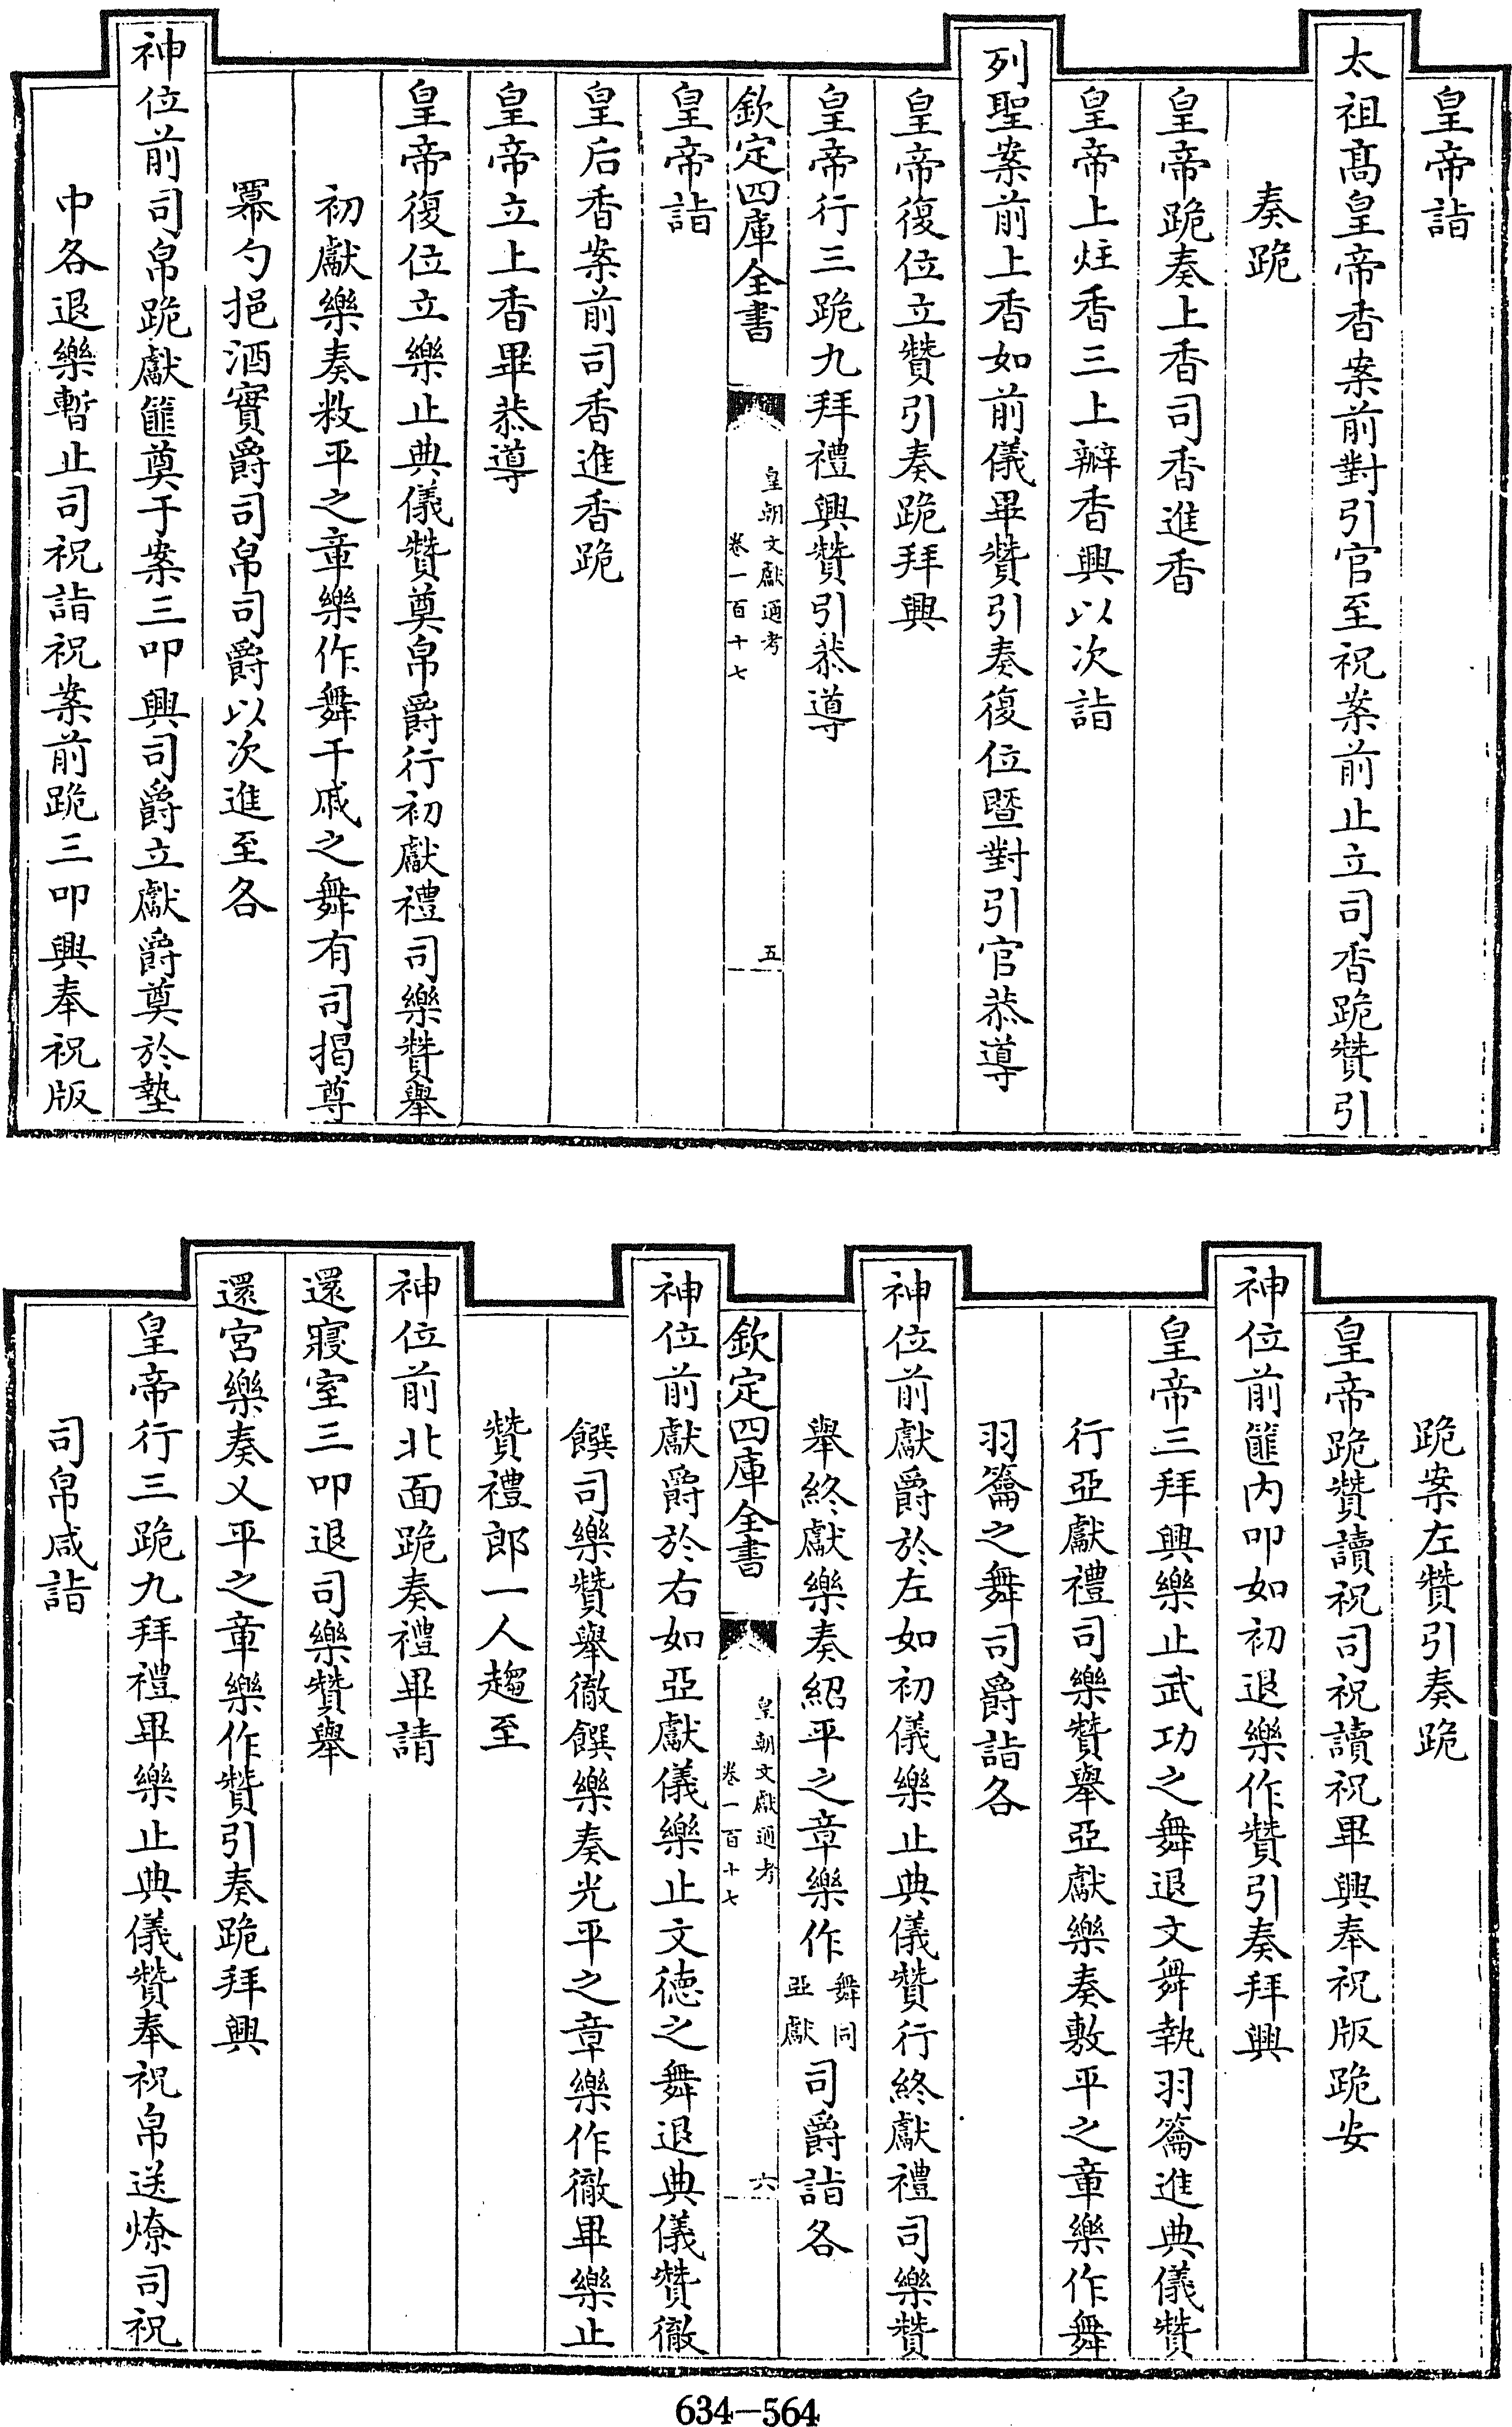 皇帝詣
太祖髙皇帝香案前對引官至祝案前止立司香跪贊引
奏跪
皇帝跪奏上香司香進香
皇帝上炷香三上瓣香興以次詣
列聖案前上香如前儀畢贊引奏復位暨對引官恭導
皇帝復位立贊引奏跪拜興
皇帝行三跪九拜禮興贊引恭導
欽定四庫全書
皇朝文獻通考
卷一百十七
五
皇帝詣
皇后香案前司香進香跪
皇帝立上香畢恭導
皇帝復位立樂止典儀贊奠帛爵行初獻禮司樂贊舉
初獻樂奏敉平之章樂作舞干戚之舞有司揭尊
冪勺挹酒實爵司帛司爵以次進至各
神位前司帛跪獻篚奠于案三叩興司爵立獻爵奠於墊
中各退樂暫止司祝詣祝案前跪三叩興奉祝版
跪案左贊引奏跪
皇帝跪贊讀祝司祝讀祝畢興奉祝版跪安
神位前篚内叩如初退樂作贊引奏拜興
皇帝三拜興樂止武功之舞退文舞執羽籥進典儀贊
行亞獻禮司樂贊舉亞獻樂奏敷平之章樂作舞
羽籥之舞司爵詣各
神位前獻爵於左如初儀樂止典儀贊行終獻禮司樂贊
舉終獻樂奏紹平之章樂作舞同亞獻司爵詣各
欽定四庫全書
皇朝文獻通考
卷一百十七
六
神位前獻爵於右如亞獻儀樂止文德之舞退典儀贊徹
饌司樂贊舉徹饌樂奏光平之章樂作徹畢樂止
贊禮郎一人趨至
神位前北面跪奏禮畢請
還寢室三叩退司樂贊舉
還宫樂奏乂平之章樂作贊引奏跪拜興
皇帝行三跪九拜禮畢樂止典儀贊奉祝帛送燎司祝
司帛咸詣
634-564